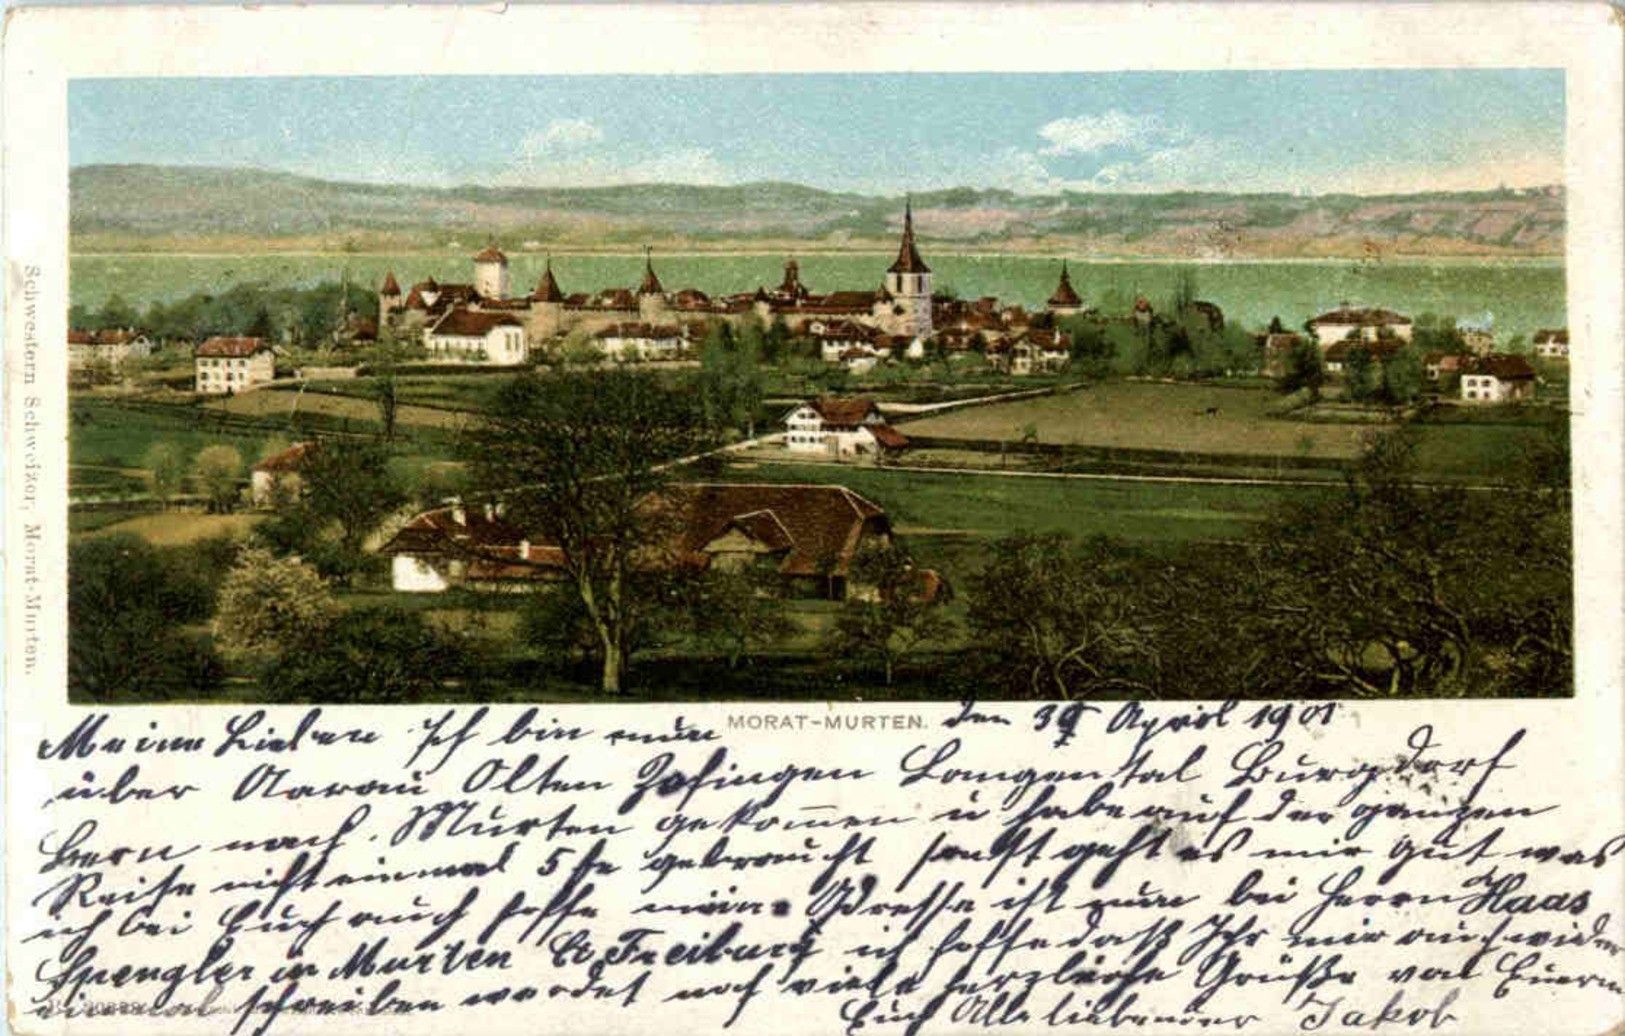 Schwestern Schweizer, Morat-Murten.
MORAT-MURTEN.
den 30 April 1901
Meine Lieben Ich bin nun
über Aarau Olten Zofingen Langental Burgdorf
Bern nach Murten gekom̅en u habe auf der ganzen
Reise nicht einmal 5 fr gebraucht sonst geht es mir gut was
ich bei Euch auch hoffe meine Adresse ist nun bei Herrn Haas
Spengler in Murten Ct Freiburg ich hoffe daß Ihr mir auch wider
einmal schreiben werdet noch viele herzliche Grüße von Euerm
Euch Alle liebender Jakob